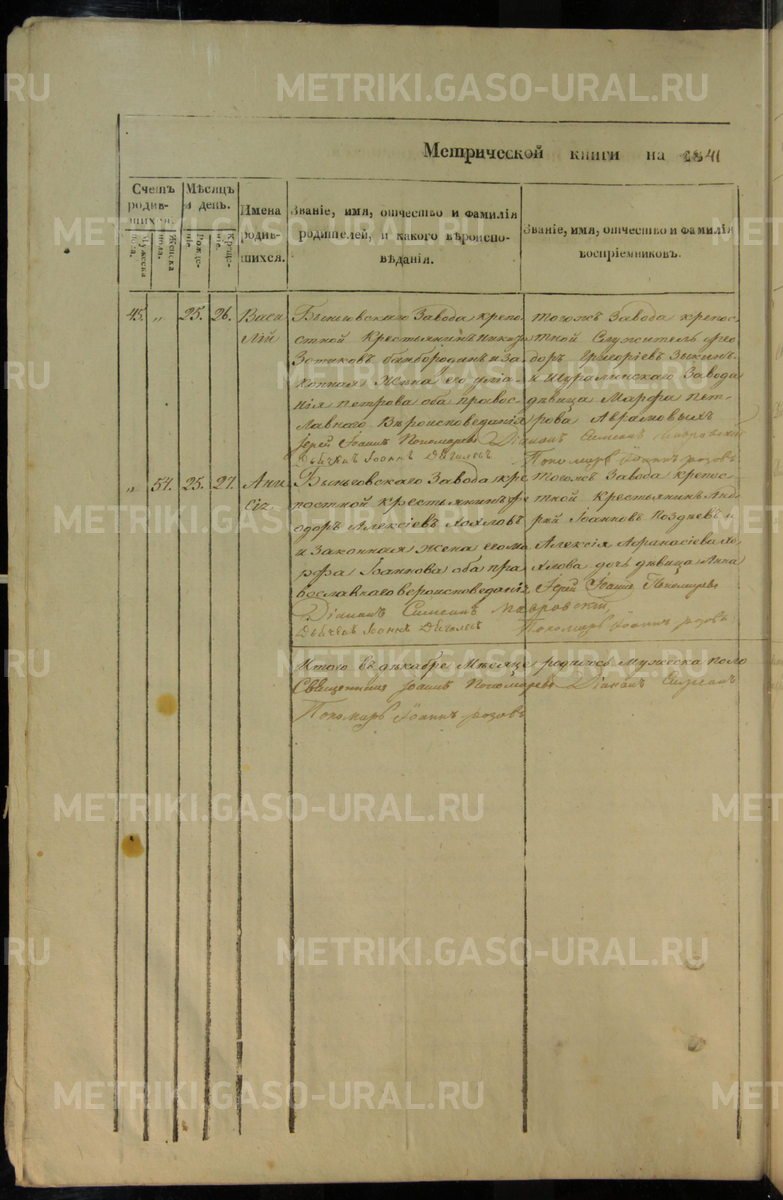 METRIKI.GASO-URAL.RU
Метрической книги на 1841
Счетъ родив-шихся.
Мужеска пола.
Женска пола.
Мѣсяцъ и день.
Рожде-нія.
Креще-нія.
Имена родив-шихся.
Званіе, имя, отчество и фамилія
родителей, и какого вѣроиспо-
вѣданія.
Званіе, имя, отчество и фамилія
воспріемниковъ.
45. „ 25. 26. Васи
лій
Заводa крепо
стной Крестьянинъ
и за
конная Жена его
нія Петрова оба правос
лавнаго Вѣроисповеданія
Іерей Іоаннъ Пономаревъ
Дьячекъ Іоаннъ
тогожъ Завода крепос
тной Служитель Фео
доръ Григорьевъ Зыкинъ
и Шуралинскаго Завода
дѣвица Марфа Пет
рова
Діаконъ Симеонъ
Пономарь Іоаннъ Розовъ
„ 54. 25. 27. Ани
сія
Быньговскаго Завода кре
постной крестьянинъ Фе
одоръ Алексіевъ
и Законная Жена его Ма
рфа Іоаннова оба пра
вославнаго вероисповеданія
Діаконъ Симеонъ
Дьячекъ Іоаннъ
тогожъ Завода крепос
тной Крестьянинъ Анд
рей Іоанновъ Поздѣевъ и
Алексія Афанасіева
дочь дѣвица Анна
Іерей Іоаннъ Пономаревъ
Пономарь Іоаннъ Розовъ
Итого въ декабре Месяце родилось Мужеска пола
Священникъ Іоаннъ Пономаревъ Діаконъ Симеонъ
Пономарь Іоаннъ Розовъ